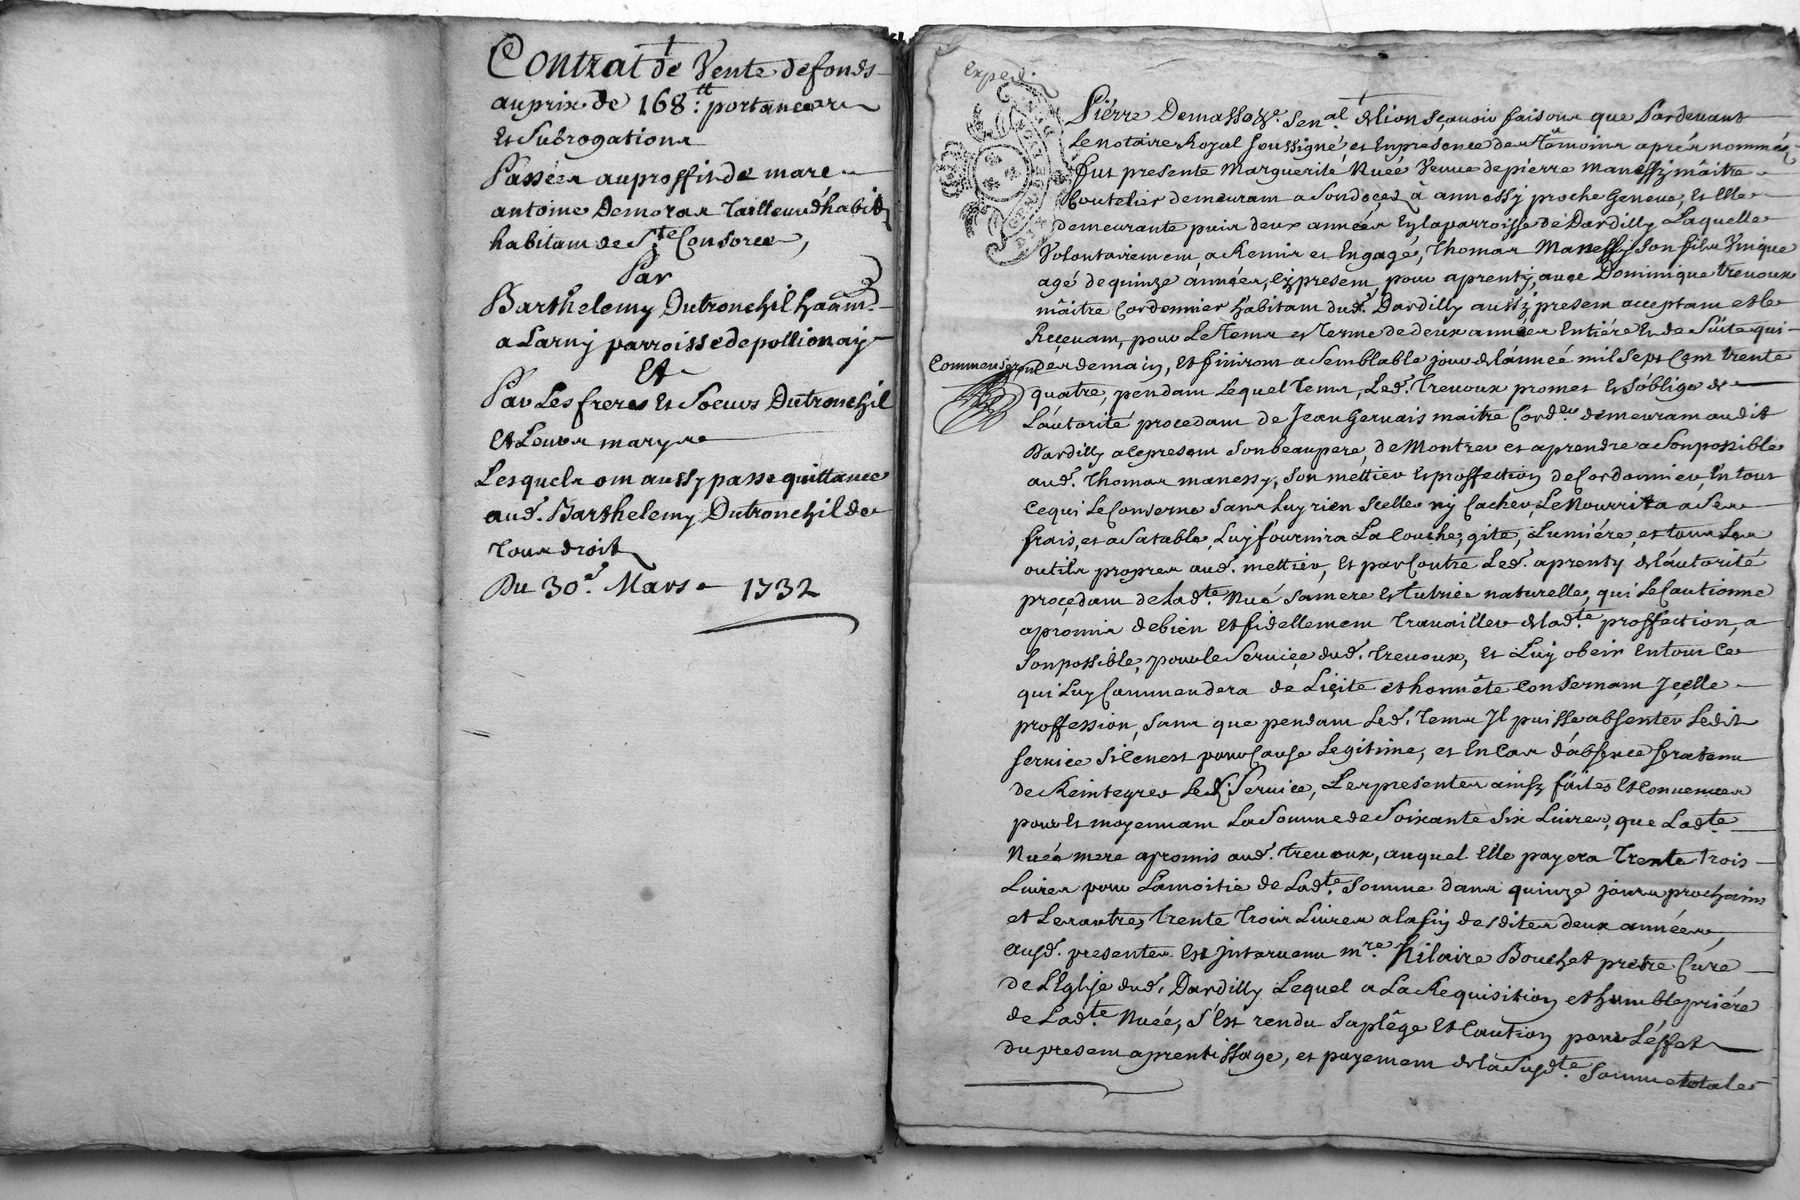 Contrat de Vente de fonds
au prix de 168:tt portance
Et Subrogations
Passées au proffit de marc
antoine Demoras Tailleur d'habits
habitant de Ste Consorce,
Par
Barthelemy Dutronchil habitt
a Larny parroisse de pollionay
Et
Par Les freres Et Soeurs Dutronchil
Et Leurs marys
Lesquels ont aussy passé quittance
aud. Barthelemy Dutronchil de
Tous droits
Du 30e. Mars 1732
Exped.
Pierre Demasso Senal de lion sçavoir faisons que Pardevant
Le notaire Royal soussigné et En presence des Témoins aprés nommés
fut presente Marguerite Nuéé Veuve de pierre Manessy mâitre
Coutelier demeurant a son deçes à annessy proche Geneve, Et Elle
demeurante puis deux années En la parroisse de Dardilly Laquelle
Volontairement a Remis et Engagé, Thomas Manessy son fils Unique
agé de quinze années, Cy present, pour aprenty, avec Dominique trevoux
mâitre Cordonnier habitant dud. Dardilly aussy present acceptant et le
Reçevant, pour Le tems et Terme de deux années Entiére Et de Suite qui
Commenseront Des demain, Et finiront a Semblable jour de l'anneé mil Sept Cent trente
quatre, pendant Lequel Tems, Led. Trevoux promet Et s'oblige de
L'autorité procedant de Jean Gervais maitre Cordier demeurant audit
Dardilly a Ce present Son beaupere, de Montrer et aprendre a Son possible
aud. Thomas manessy, Son mettier Et proffection de Cordonnier, En tout
Ce qui Le Conserne Sans Luy rien Sceller ny Cacher, Le Nourrira a Ses
frais, et a Sa table, Luy fournira La Couche, gite, Lumiére, et tous Les
outils propres aud. mettier, Et par Contre Led. aprenty de l'autorité
proçedant de Ladte. Nué Sa mere Et Tutrice naturelle, qui Le Cautionne
a promis de bien Et fidellement Travailler de ladte. proffection, a
Son possible, pour le Serviçe dud. Trevoux, Et Luy obeir En tout Ce
qui Luy Commendera de Liçite et honnête Consernant Jçelle
proffession, Sans que pendant Led. Tems Jl puisse absenter Ledit
Service Si Ce n'est pour Cause Legitime, et En Cas d'absence Sera tenu
de Reintegrer Led. Service, Les presentes ainsy faites Et Convenues
pour Et moyennant La Somme de Soixante Six Livres, que Ladte.
Nuéé mere a promis aud. trevoux, auquel Elle payera Trente trois
Livres pour La moitié de Ladte. Somme dans quinze jours prochains
et Les autres Trente Trois Livres a la fin desdites deux années,
ausd. presentes Est Jntervenu mre. Hilaire Bouchet prétre Curé
de L'Eglise dud. Dardilly Lequel a La Requisition et humble priére
de Ladte. Nuéé, s'Est rendu Sa plége Et Caution pour L'éffet
du present aprentissage, et payement de la Susdte. Somme totale